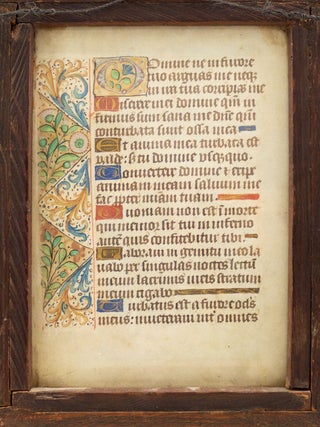 Domine ne in furore
tuo arguas me neqȝ
in ira tua corripias me
Miserere mei domine qm̄ in
firmus sum sana me dn̄e qm̄
conturbata sunt ossa mea
Et anima mea turbata est
valde: s; tu domine usquequo.
Convertere domine & eripe
animam meam salvum me
fac propter miam̄ tuam.
Quoniam non est in morte
qui memor sit tui in inferno
autē quis confitebitur tibi.
Laboravi in gemitu meo la
vabo per singulas noctes lectū
meum lacrimis meis stratum
meum rigabo
Turbatus est a furore oculꝰ
meus: inveteravi int̄ omnes